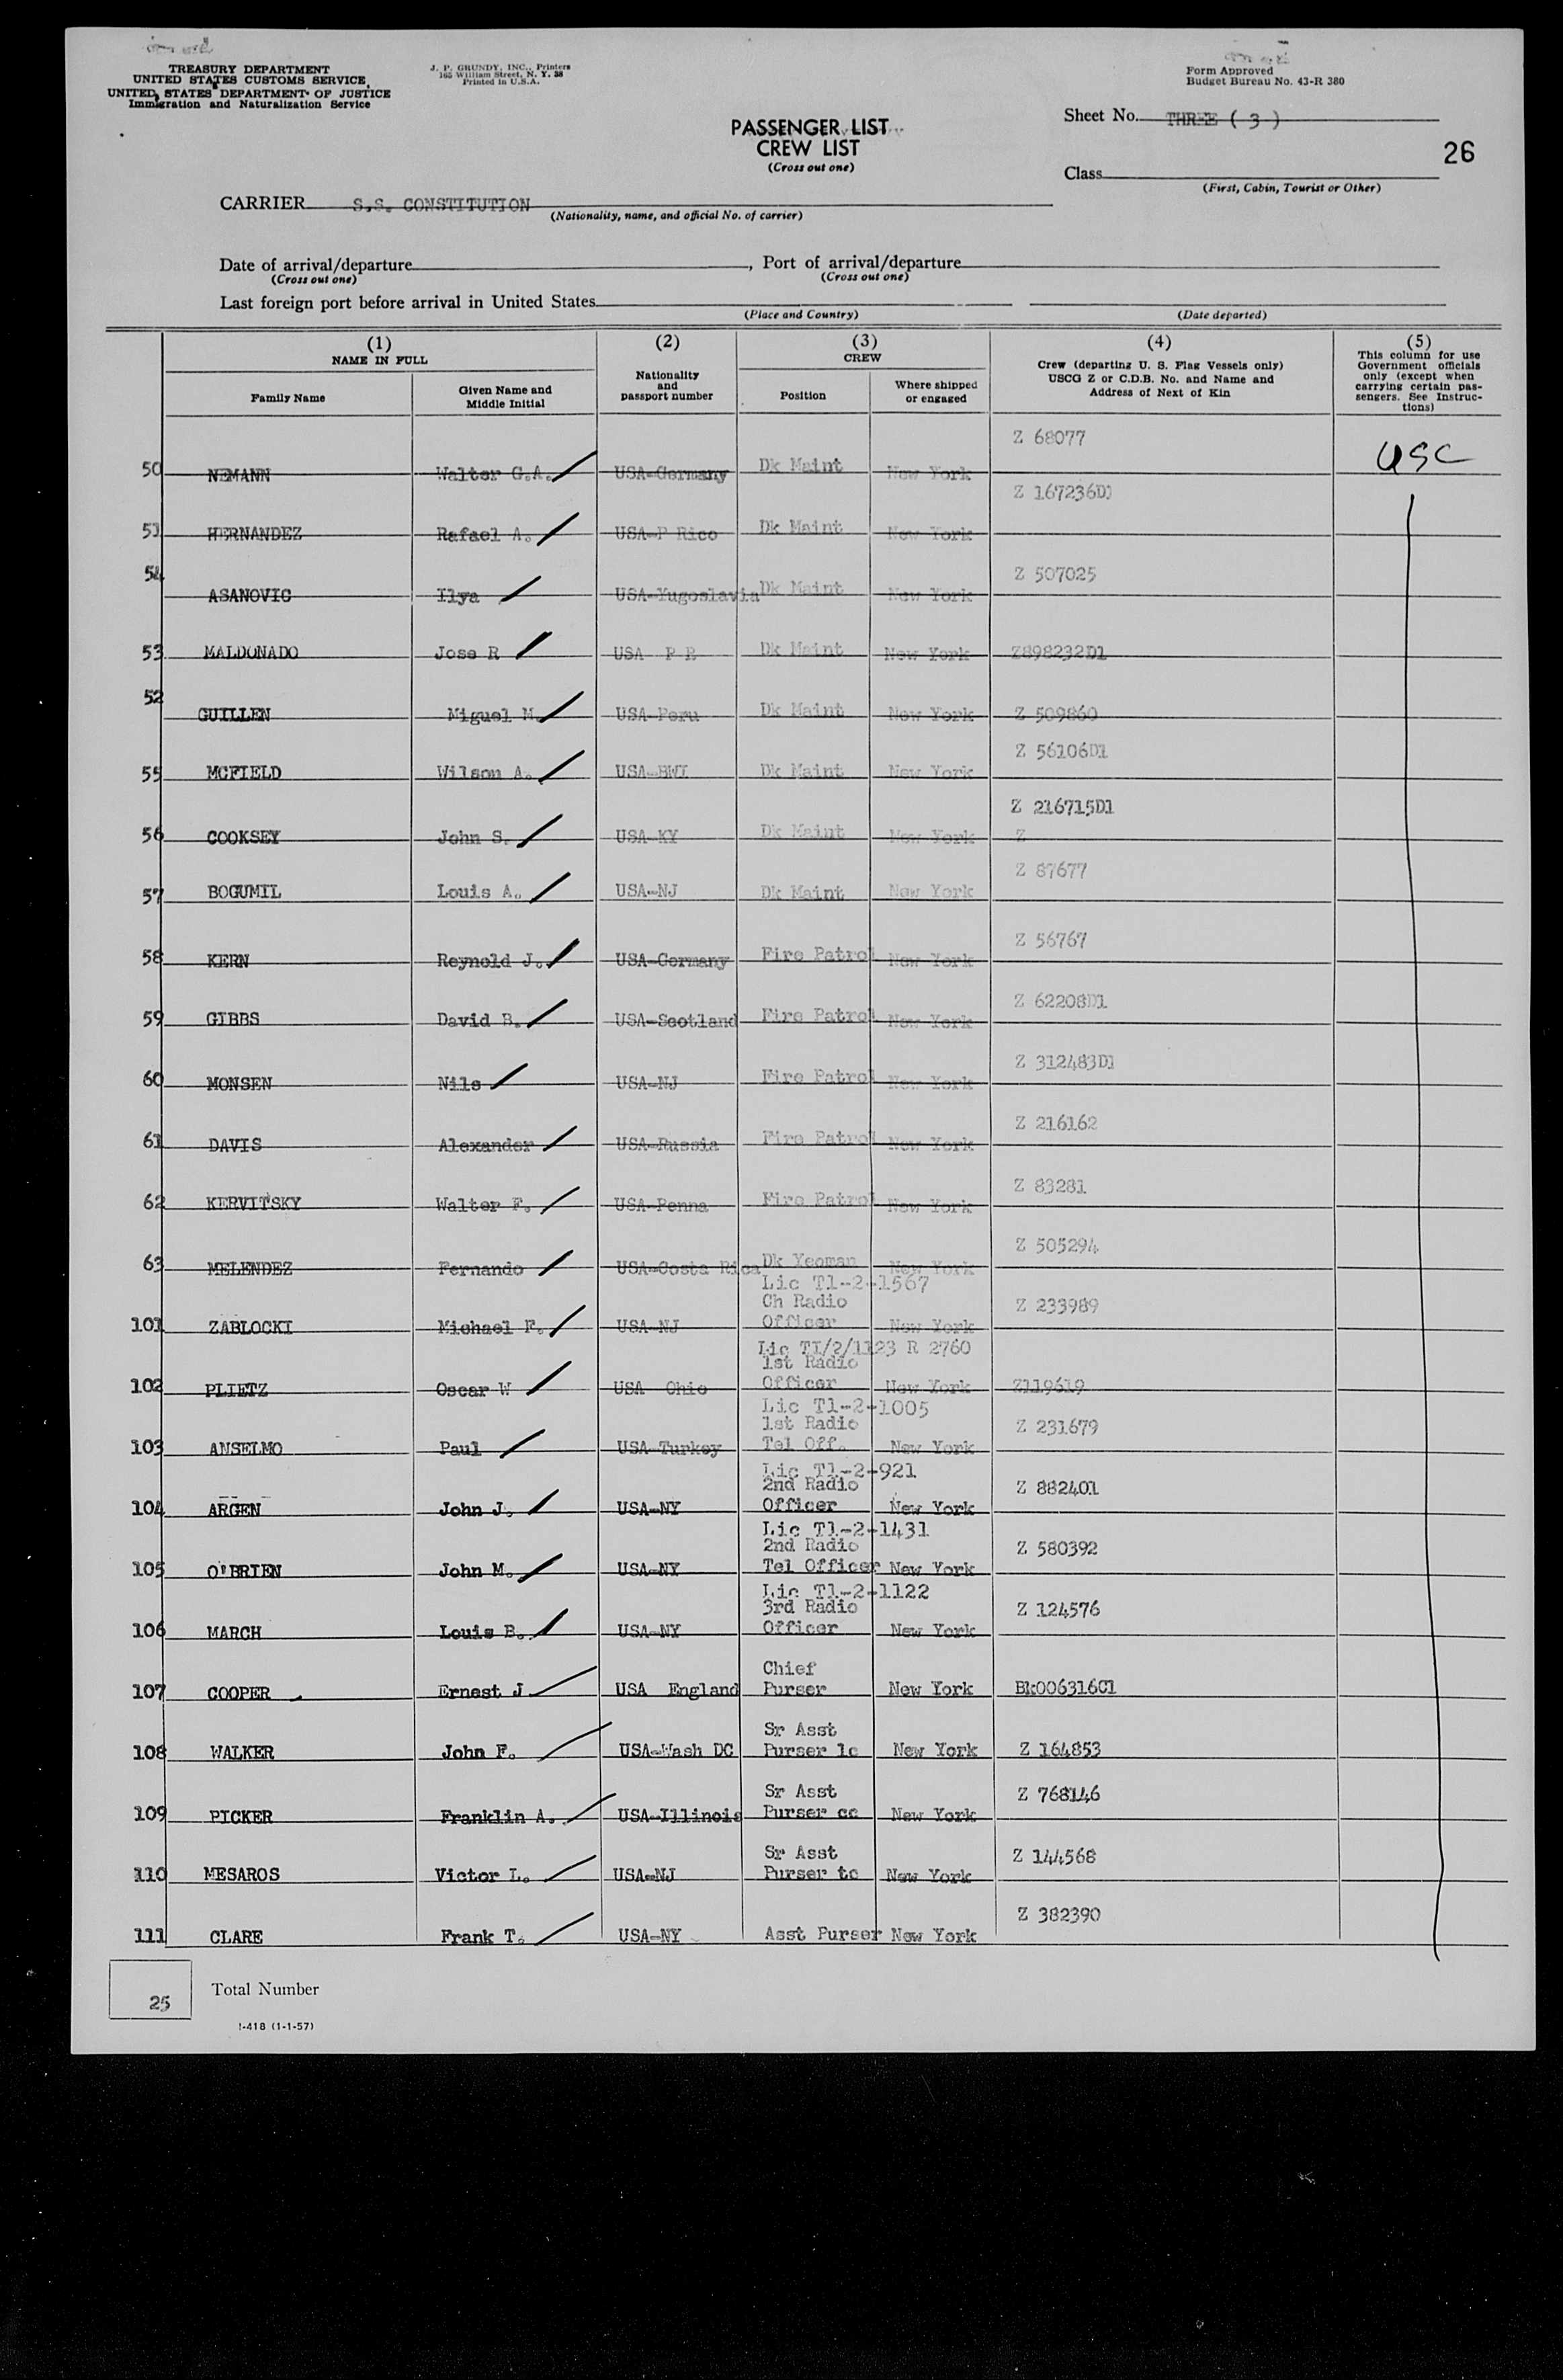 TREASURY DEPARTMENT
UNITED STATES CUSTOMS SERVICE
UNITED STATES DEPARTMENT OF JUSTICE
Immigration and Naturalization Service
J. P. GRUNDY, INC., Printers
165 William Street, N. Y. 38
Printed in U.S.A.
Form Approved
Budget Bureau No. 43-R 380
PASSENGER LIST
CREW LIST
(Cross out one)
Sheet No. THREE ( 3 )
26
Class
(First, Cabin, Tourist or Other)
CARRIER S.S. CONSTITUTION
(Nationality, name, and official No. of carrier)
Date of arrival/departure , Port of arrival/departure
(Cross out one) (Cross out one)
Last foreign port before arrival in United States
(Place and Country) (Date departed)
(1) NAME IN FULL
Family Name
Given Name and Middle Initial
(2) Nationality and passport number
(3) CREW
Position
Where shipped or engaged
(4) Crew (departing U. S. Flag Vessels only) USCG Z or C.D.B. No. and Name and Address of Next of Kin
(5) This column for use Government officials only (except when carrying certain passengers. See Instructions)
50 NEMANN Walter G.A. USA-Germany Dk Maint New York Z 68077 USC
51 HERNANDEZ Rafael A. USA-P Rico Dk Maint New York Z 167236D1
54 ASANOVIC Ilya USA-Yugoslavia Dk Maint New York Z 507025
53 MALDONADO Jose R USA P R Dk Maint New York Z898232D1
52 GUILLEN Miguel M. USA-Peru Dk Maint New York Z 509860
55 MCFIELD Wilson A. USA-BWI Dk Maint New York Z 56106D1
56 COOKSEY John S. USA-KY Dk Maint New York Z 216715D1
Z
57 BOGUMIL Louis A. USA-NJ Dk Maint New York Z 87677
58 KERN Reynold J. USA-Germany Fire Patrol New York Z 56767
59 GIBBS David B. USA-Scotland Fire Patrol New York Z 62208D1
60 MONSEN Nils USA-NJ Fire Patrol New York Z 312483D1
61 DAVIS Alexander USA-Russia Fire Patrol New York Z 216162
62 KERVITSKY Walter F. USA-Penna Fire Patrol New York Z 83281
63 MELENDEZ Fernando USA-Costa Rica Dk Yeoman New York Z 505294
Lic Tl-2-1567
101 ZABLOCKI Michael F. USA-NJ Ch Radio Officer New York Z 233989
Lic TI/2/1123 R 2760
102 PLIETZ Oscar W USA Ohio 1st Radio Officer New York Z119619
Lic Tl-2-1005
103 ANSELMO Paul USA-Turkey 1st Radio Tel Off. New York Z 231679
Lic Tl-2-921
104 ARGEN John J. USA-NY 2nd Radio Officer New York Z 882401
Lic Tl-2-1431
105 O'BRIEN John M. USA-NY 2nd Radio Tel Officer New York Z 580392
Lic Tl-2-1122
106 MARCH Louis B. USA-NY 3rd Radio Officer New York Z 124576
107 COOPER Ernest J USA England Chief Purser New York Bk006316C1
108 WALKER John F. USA-Wash DC Sr Asst Purser lc New York Z 164853
109 PICKER Franklin A. USA-Illinois Sr Asst Purser cc New York Z 768146
110 MESAROS Victor L. USA-NJ Sr Asst Purser tc New York Z 144568
111 CLARE Frank T. USA-NY Asst Purser New York Z 382390
25 Total Number
I-418 (1-1-57)